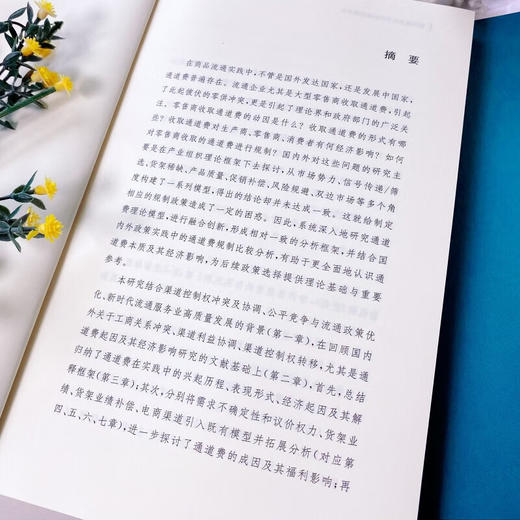 摘 要
在商品流通实践中，不管是国外发达国家，还是发展中国家，
通道费普遍存在。流通企业尤其是大型零售商收取通道费，引起
了此起彼伏的零供冲突，更是引起了理论界和政府部门的广泛关
注。零售商收取通道费的动因是什么？收取通道费的形式有哪
些？收取通道费对生产商、零售商、消费者有何经济影响？如何
对零售商收取的通道费进行规制？国内外对这些问题的研究主
要是在产业组织理论框架下去探讨，从市场势力、信号传递/筛
选、货架稀缺、产品质量、促销补偿、风险规避、双边市场等多个角
度构建了一系列模型，得出的结论却并未达成一致。这就给制定
相应的规制政策造成了一定的困惑。因此，系统深入地研究通道
费理论模型，进行融合创新，形成相对一致的分析框架，并结合国
内外政策实践中的通道费规制比较分析，有助于更全面地认识通
道费本质及其经济影响，为后续政策选择提供理论基础与重要
参考。
本研究结合渠道控制权冲突及协调、公平竞争与流通政策优
化、新时代流通服务业高质量发展的背景（第一章），在回顾国内
外关于工商关系冲突、渠道利益协调、渠道控制权转移，尤其是通
道费起因及其经济影响研究的文献基础上（第二章），首先，总结
归纳了通道费在实践中的兴起历程、表现形式、经济起因及其解
释框架（第三章）；其次，分别将需求不确定性和议价权力、货架业
绩、货架业绩补偿、电商渠道引入既有模型并拓展分析（对应第
四、五、六、七章），进一步探讨了通道费的成因及其福利影响；再